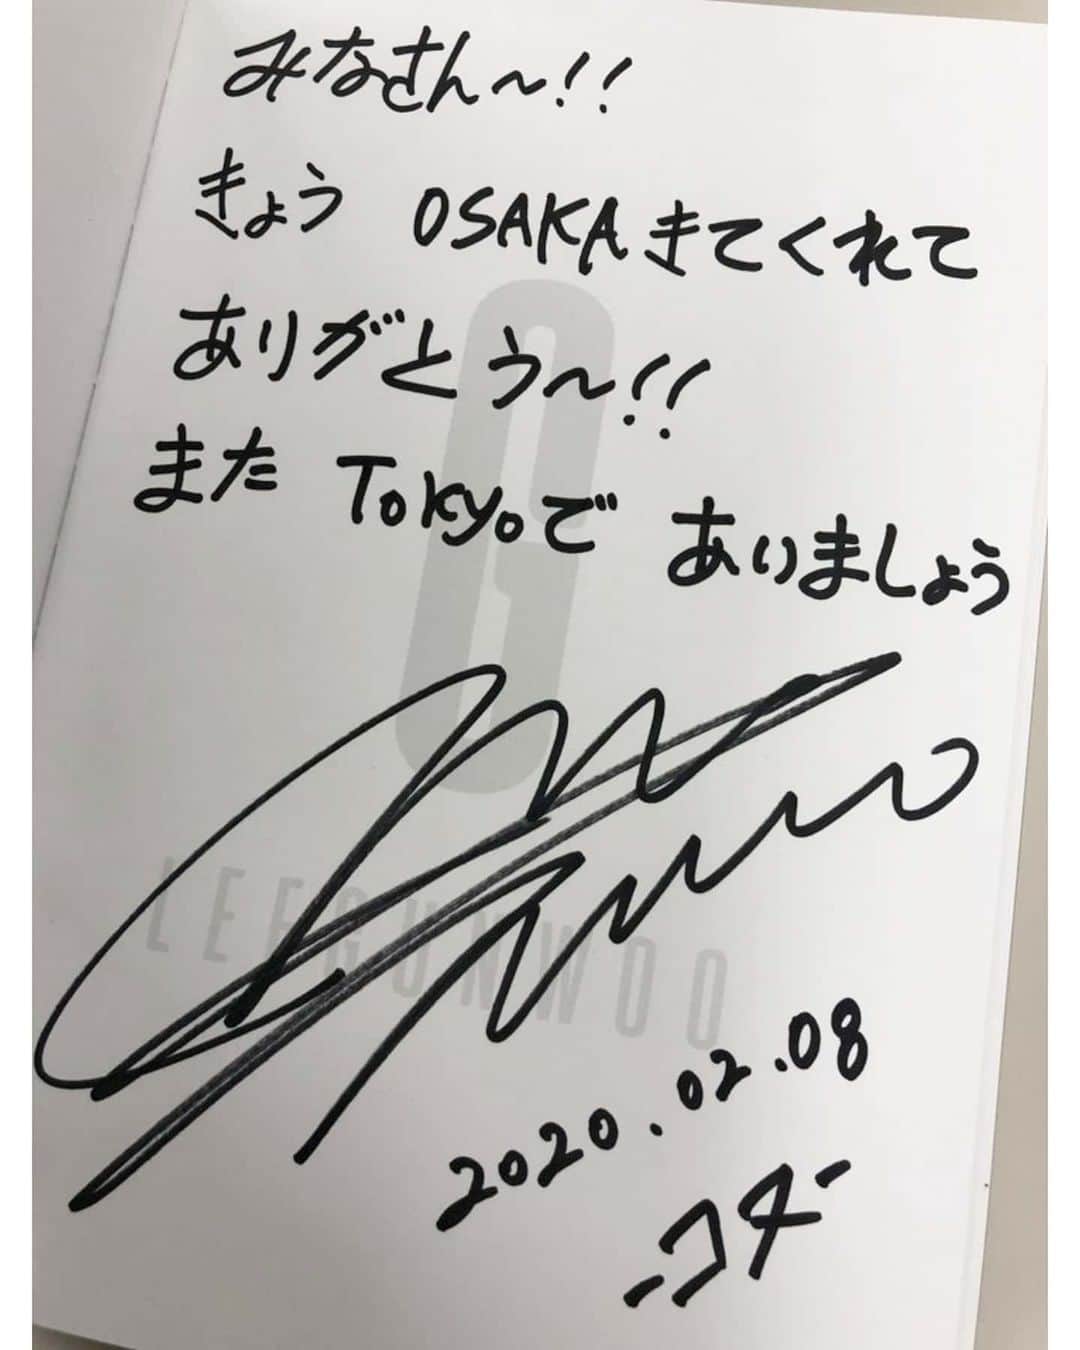 みなさん〜!!
きょう OSAKAきてくれて
ありがとう〜!!
また TOKyoで あいましょう
G
LEEGUNWOO
2020.02.08
-コター